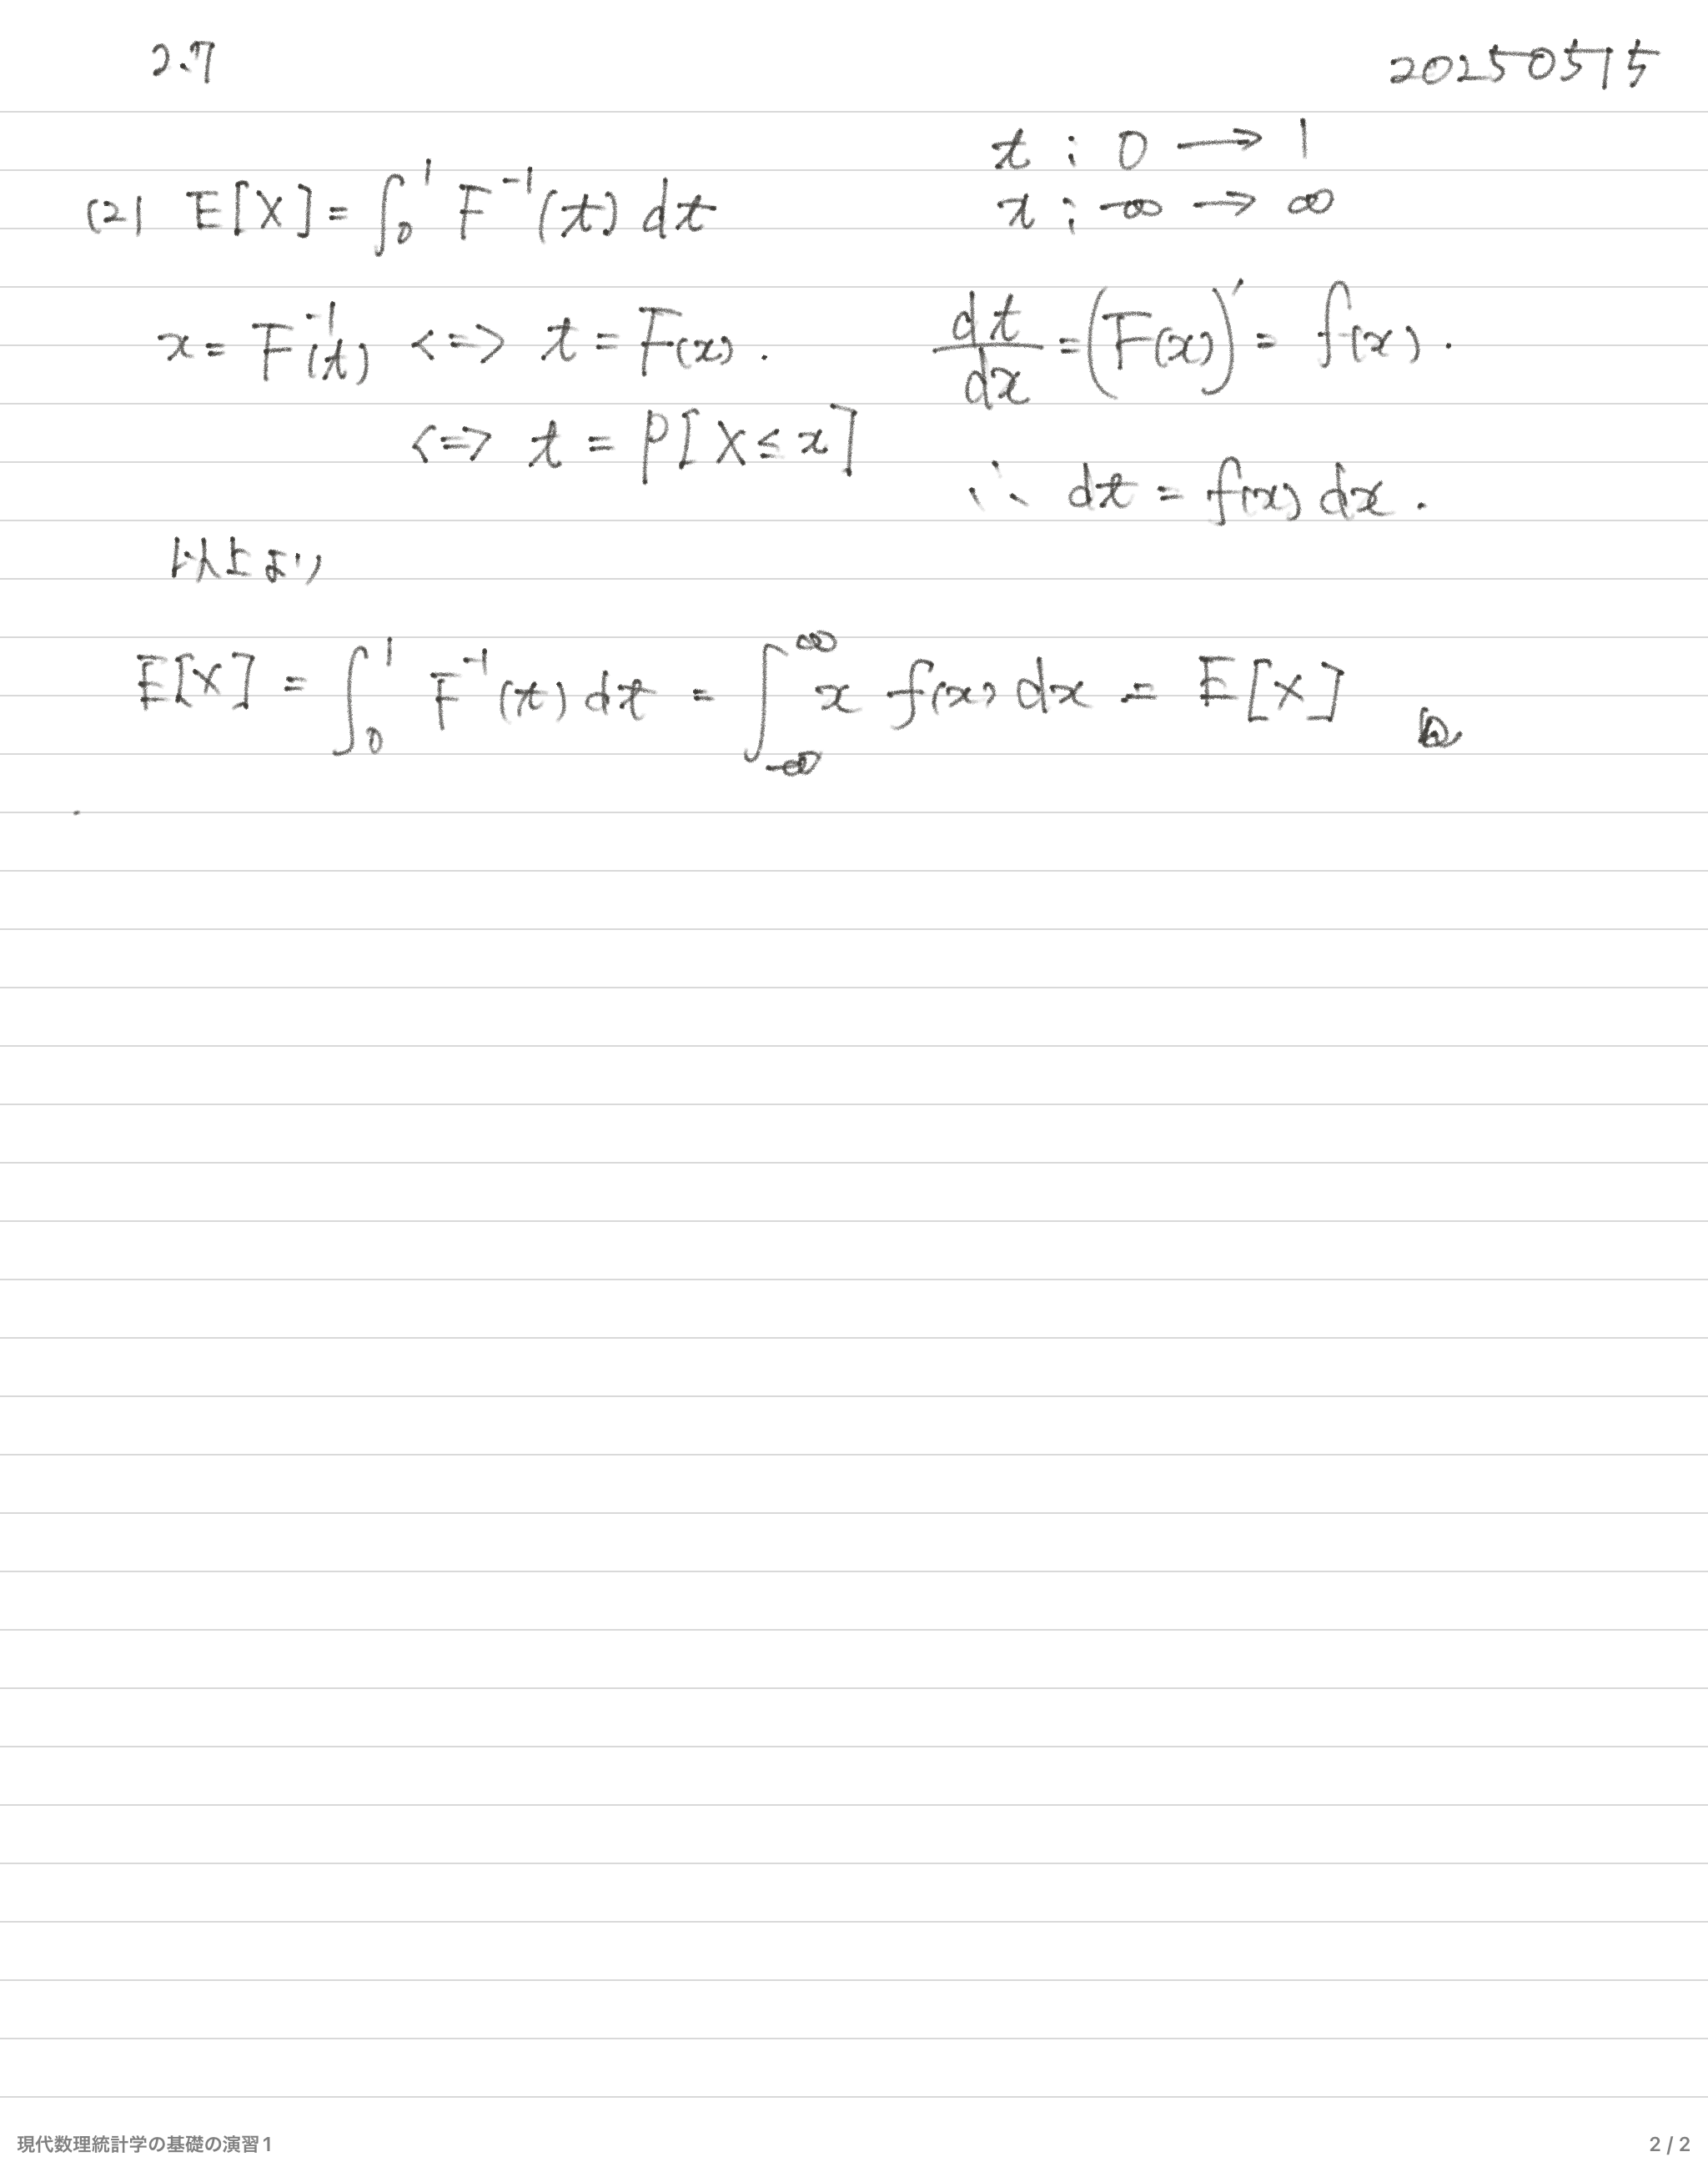 2.7 20250515
(2) E[X] = ∫₀¹ F⁻¹(t) dt
t : 0 → 1
x : -∞ → ∞
x = F⁻¹(t) <=> t = F(x).
<=> t = P[X ≤ x]
dt/dx = (F(x))' = f(x).
∴ dt = f(x) dx.
以上より
E[X] = ∫₀¹ F⁻¹(t) dt = ∫_{-∞}^{∞} x f(x) dx = E[X]
現代数理統計学の基礎の演習1 2 / 2